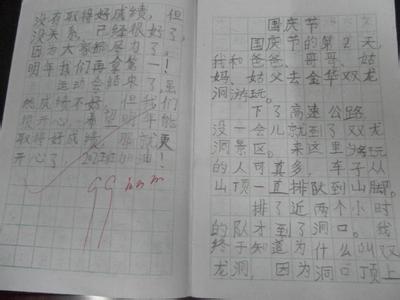 没有取得好成绩，但
没关系，已经很好了，
因为大家都尽力了！
明年我们再拿第一！
运动会结束了，虽
然成绩不好，但我们
很开心。希望明年能
取得好成绩，那就更
开心了，加油！
99
国庆节
国庆节的第2天，
我和爸爸、哥哥、姑
妈、姑父去金华双龙
洞游玩。
下了高速公路
没一会儿就到了双龙
洞景区。来这里游玩
的人可真多，车子从
山顶一直排队到山脚。
排了近两个小时
的队才到了洞口。我
终于知道为什么叫双
龙洞，因为洞口顶上